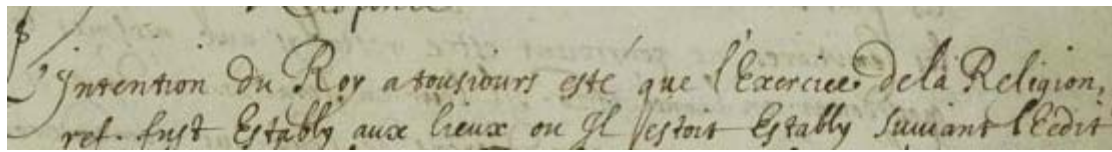 Response
L'Intention du Roy a tousiours esté que l'Exercice de la Religion,
ref. fust Estably aux lieux ou Il estoit Estably suiuant l'Ecdit